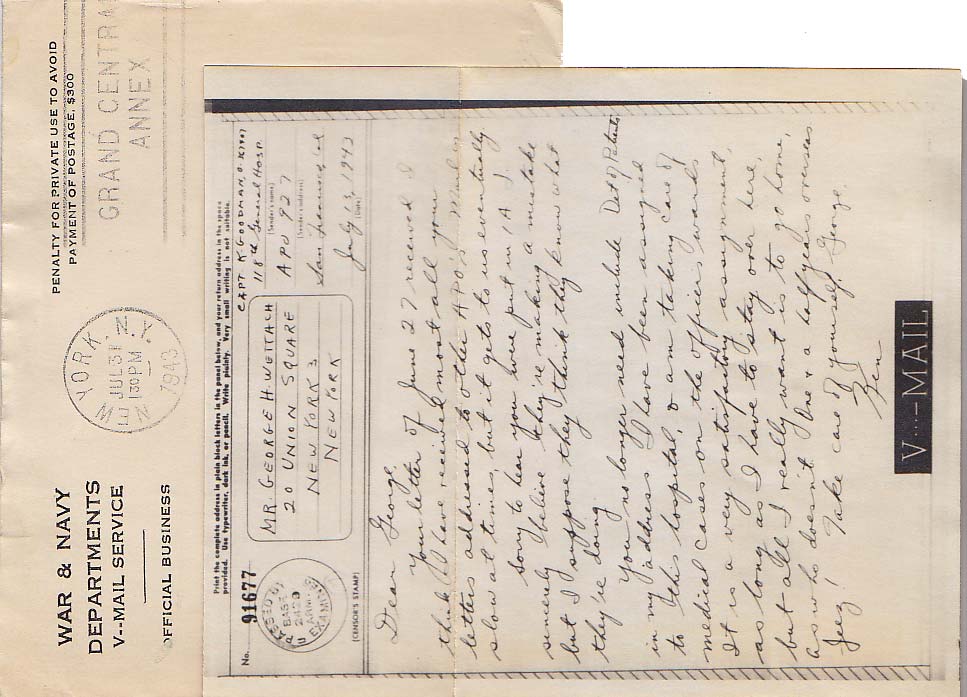 WAR & NAVY
DEPARTMENTS
V--MAIL SERVICE
OFFICIAL BUSINESS
NEW YORK, N.Y.
JUL 31
130 PM
1943
PENALTY FOR PRIVATE USE TO AVOID
PAYMENT OF POSTAGE, $300
GRAND CENTRAL
ANNEX
Print the complete address in plain block letters in the panel below, and your return address in the space
provided. Use typewriter, dark ink, or pencil. Write plainly. Very small writing is not suitable.
No. 91677
PASSED BY
BASE
ARMY
EXAMINER
(CENSOR'S STAMP)
MR. GEORGE H. WETTACH
20 UNION SQUARE
NEW YORK 3
NEW YORK
CAPT. K GOODMAN
118th General Hosp.
(Sender's name)
APO 927
(Sender's address)
San Francisco, Cal
July 13, 1943
(Date)
Dear George,
Your letter of June 27 received. I
think I have received most all your
letters addressed to other APO's. Mail is
slow at times, but it gets to us eventually
Sorry to hear you were put in A 1. I
sincerely believe they're making a mistake
but I suppose they think they know what
they're doing
You no longer need include Det of Patients
in my address as I have been assigned
to this hospital, & am taking care of
medical cases on the officers wards
It is a very satisfactory assignment,
as long as I have to stay over here,
but all I really want is to go home,
as who doesn't. One & a half years overseas
Jeez! Take care of yourself, George.
Ken
V---MAIL